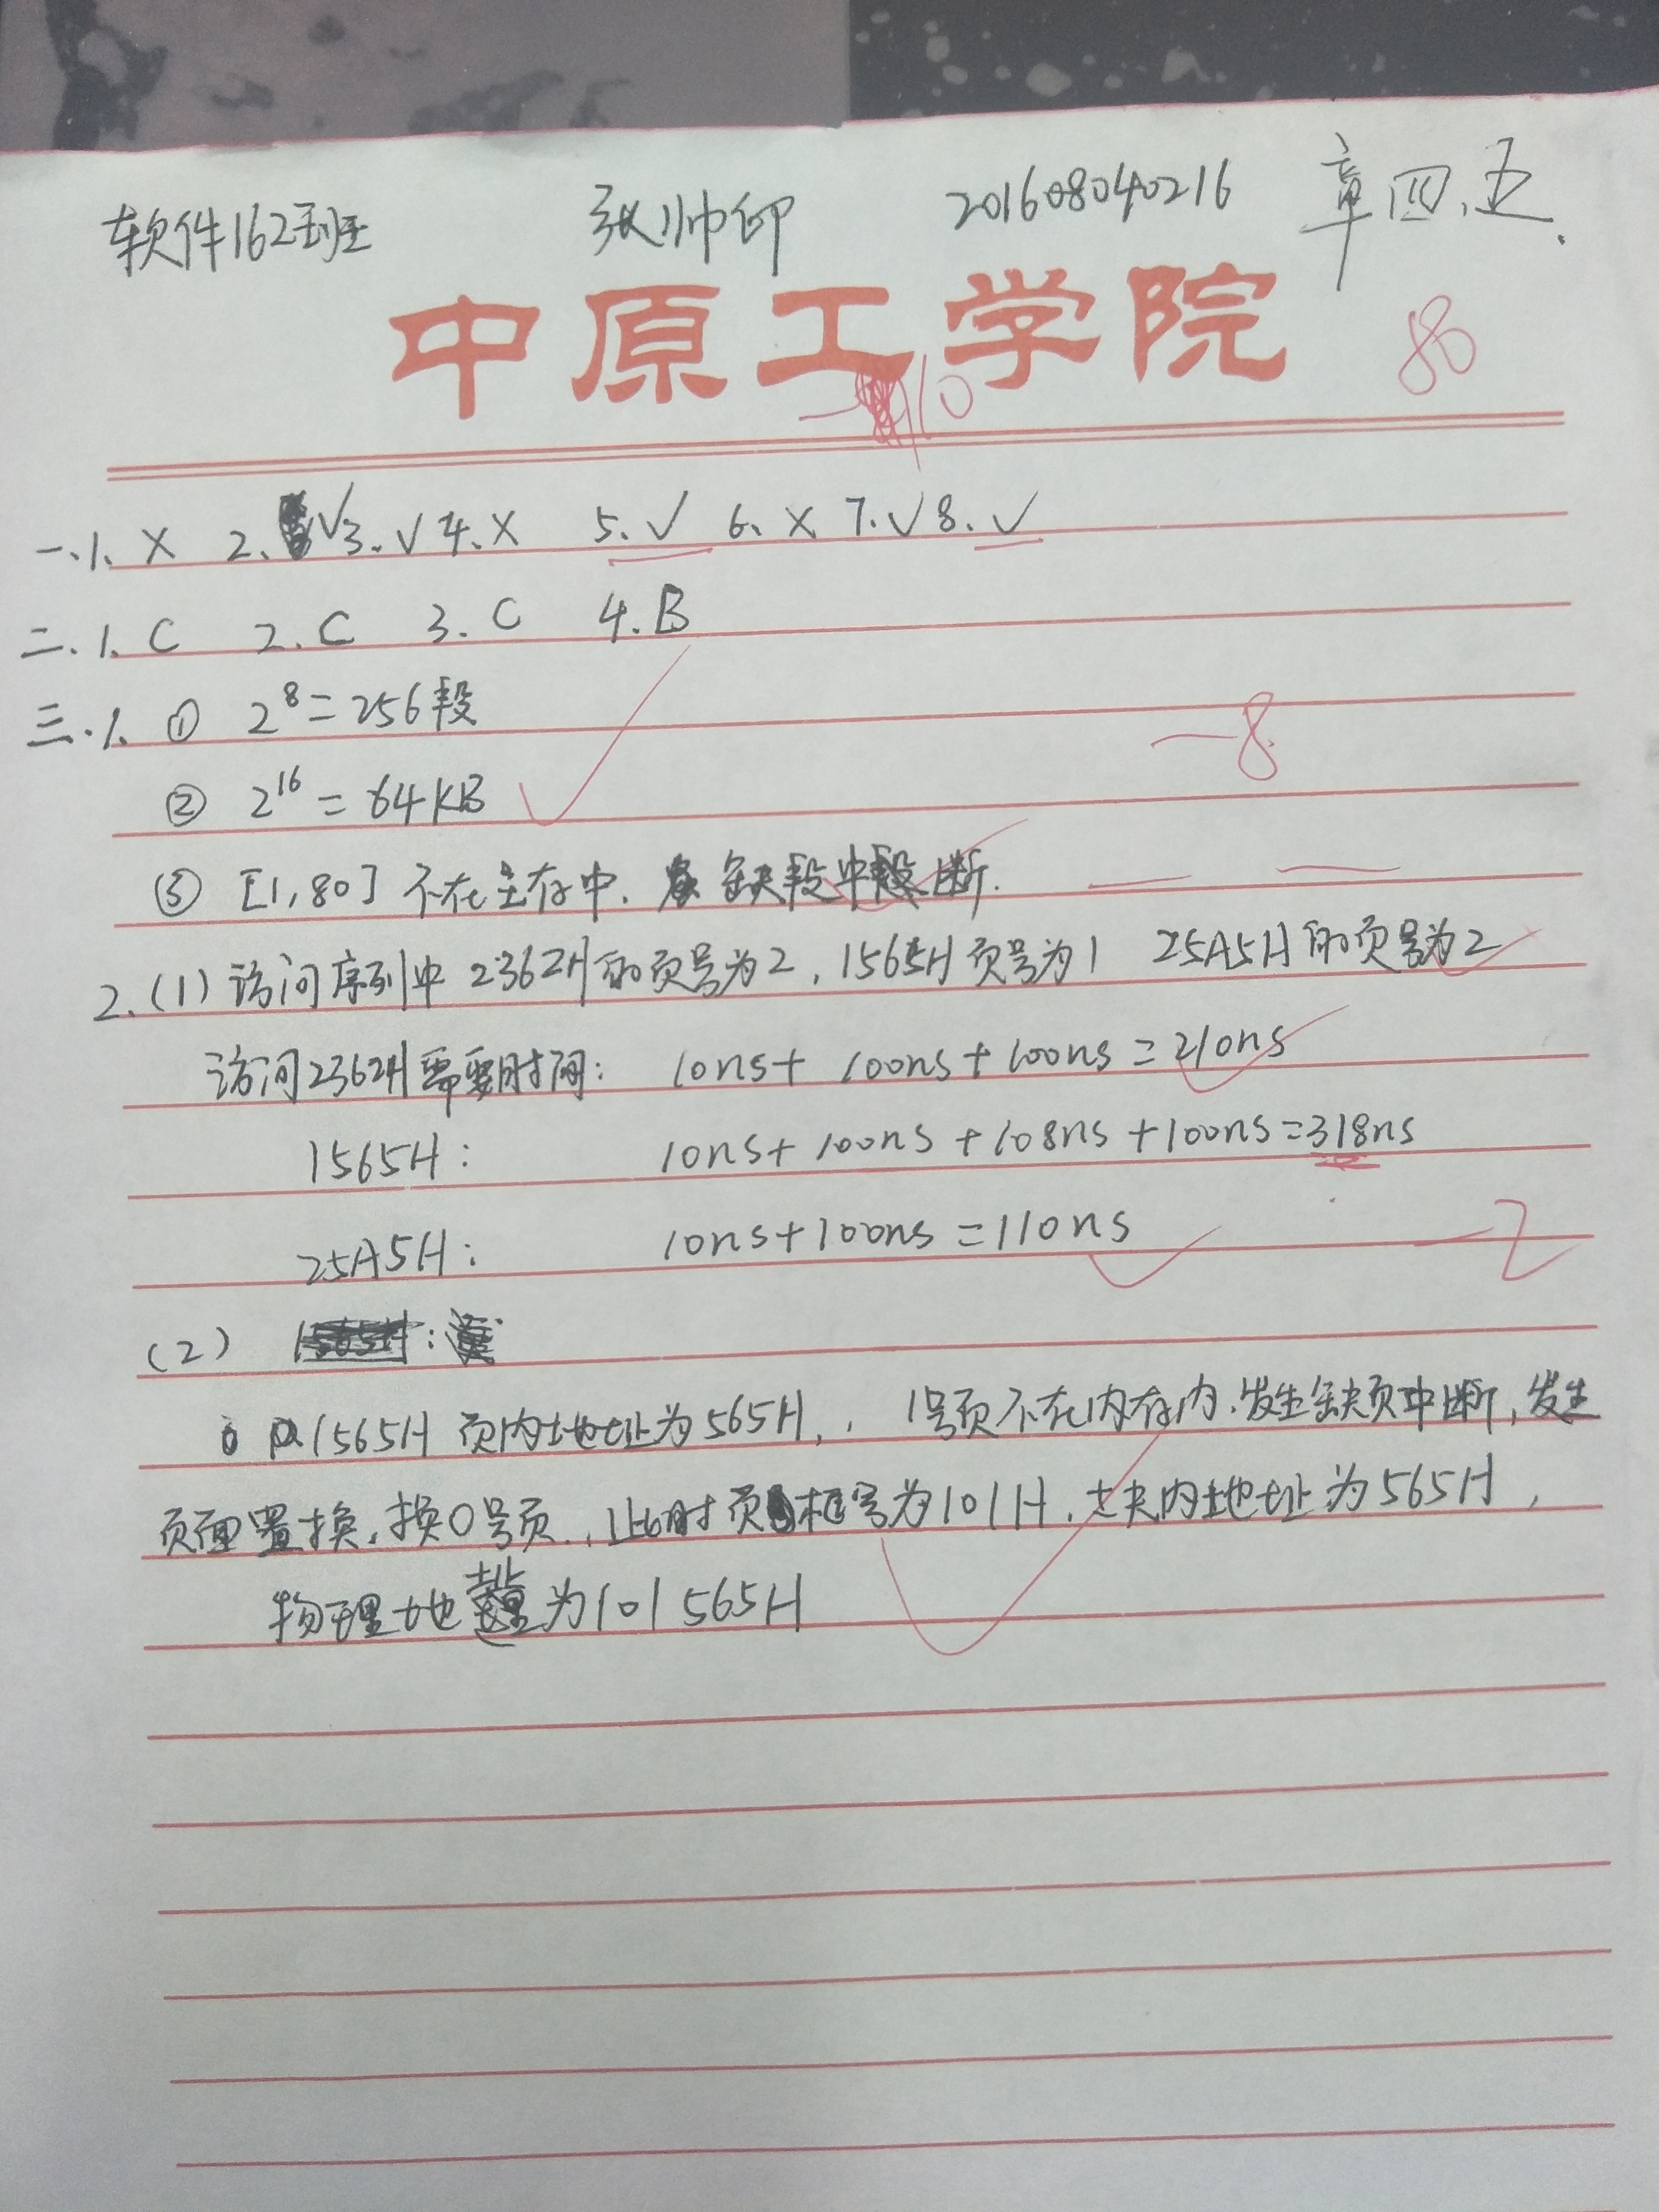 软件162班 张帅印 201608040216 章四、五.
中原工学院
80
-10
一.1. X 2. √ 3. √ 4. X 5. √ 6. X 7. √ 8. √
二.1. C 2. C 3. C 4. B
三.1. ① 2⁸=256段
-8
② 2¹⁶=64KB
③ [1,80] 不在主存中. 缺段中断.
2.(1) 访问序列中 2362H的页号为2, 1565H页号为1 25A5H的页号为2
访问2362H需要时间: 10ns+100ns+100ns=210ns
1565H: 10ns+100ns+108ns+100ns=318ns
25A5H: 10ns+100ns=110ns
-2
(2)
1565H 页内地址为565H, 1号页不在内存内.发生缺页中断,发生
页面置换,换0号页.,此时页框号为101H.块内地址为565H,
物理地址为101565H